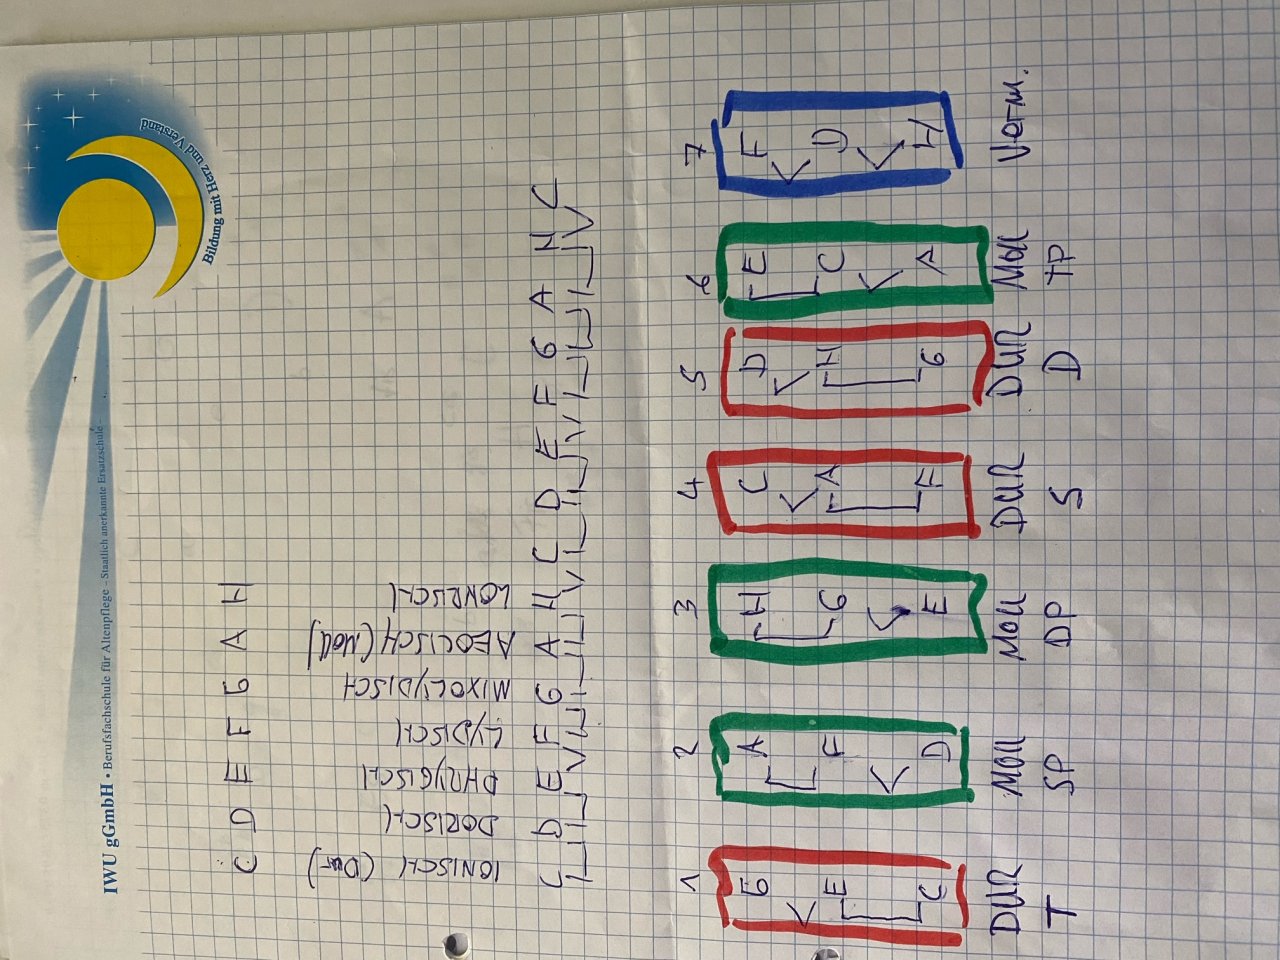 Bildung mit Herz und Verstand
IWU gGmbH • Berufsfachschule für Altenpflege – Staatlich anerkannte Ersatzschule –
C D E F G A H
IONISCH (Dur)
DORISCH
PHRYGISCH
LYDISCH
MIXOLYDISCH
AEOLISCH (Moll)
LOKRISCH
C D E F G A H C D E F G A H C
1 2 3 4 5 6 7
G A H C D E F
E F G A H C D
C D E F G A H
DUR Moll Moll DUR DUR Moll Verm.
T SP DP S D TP